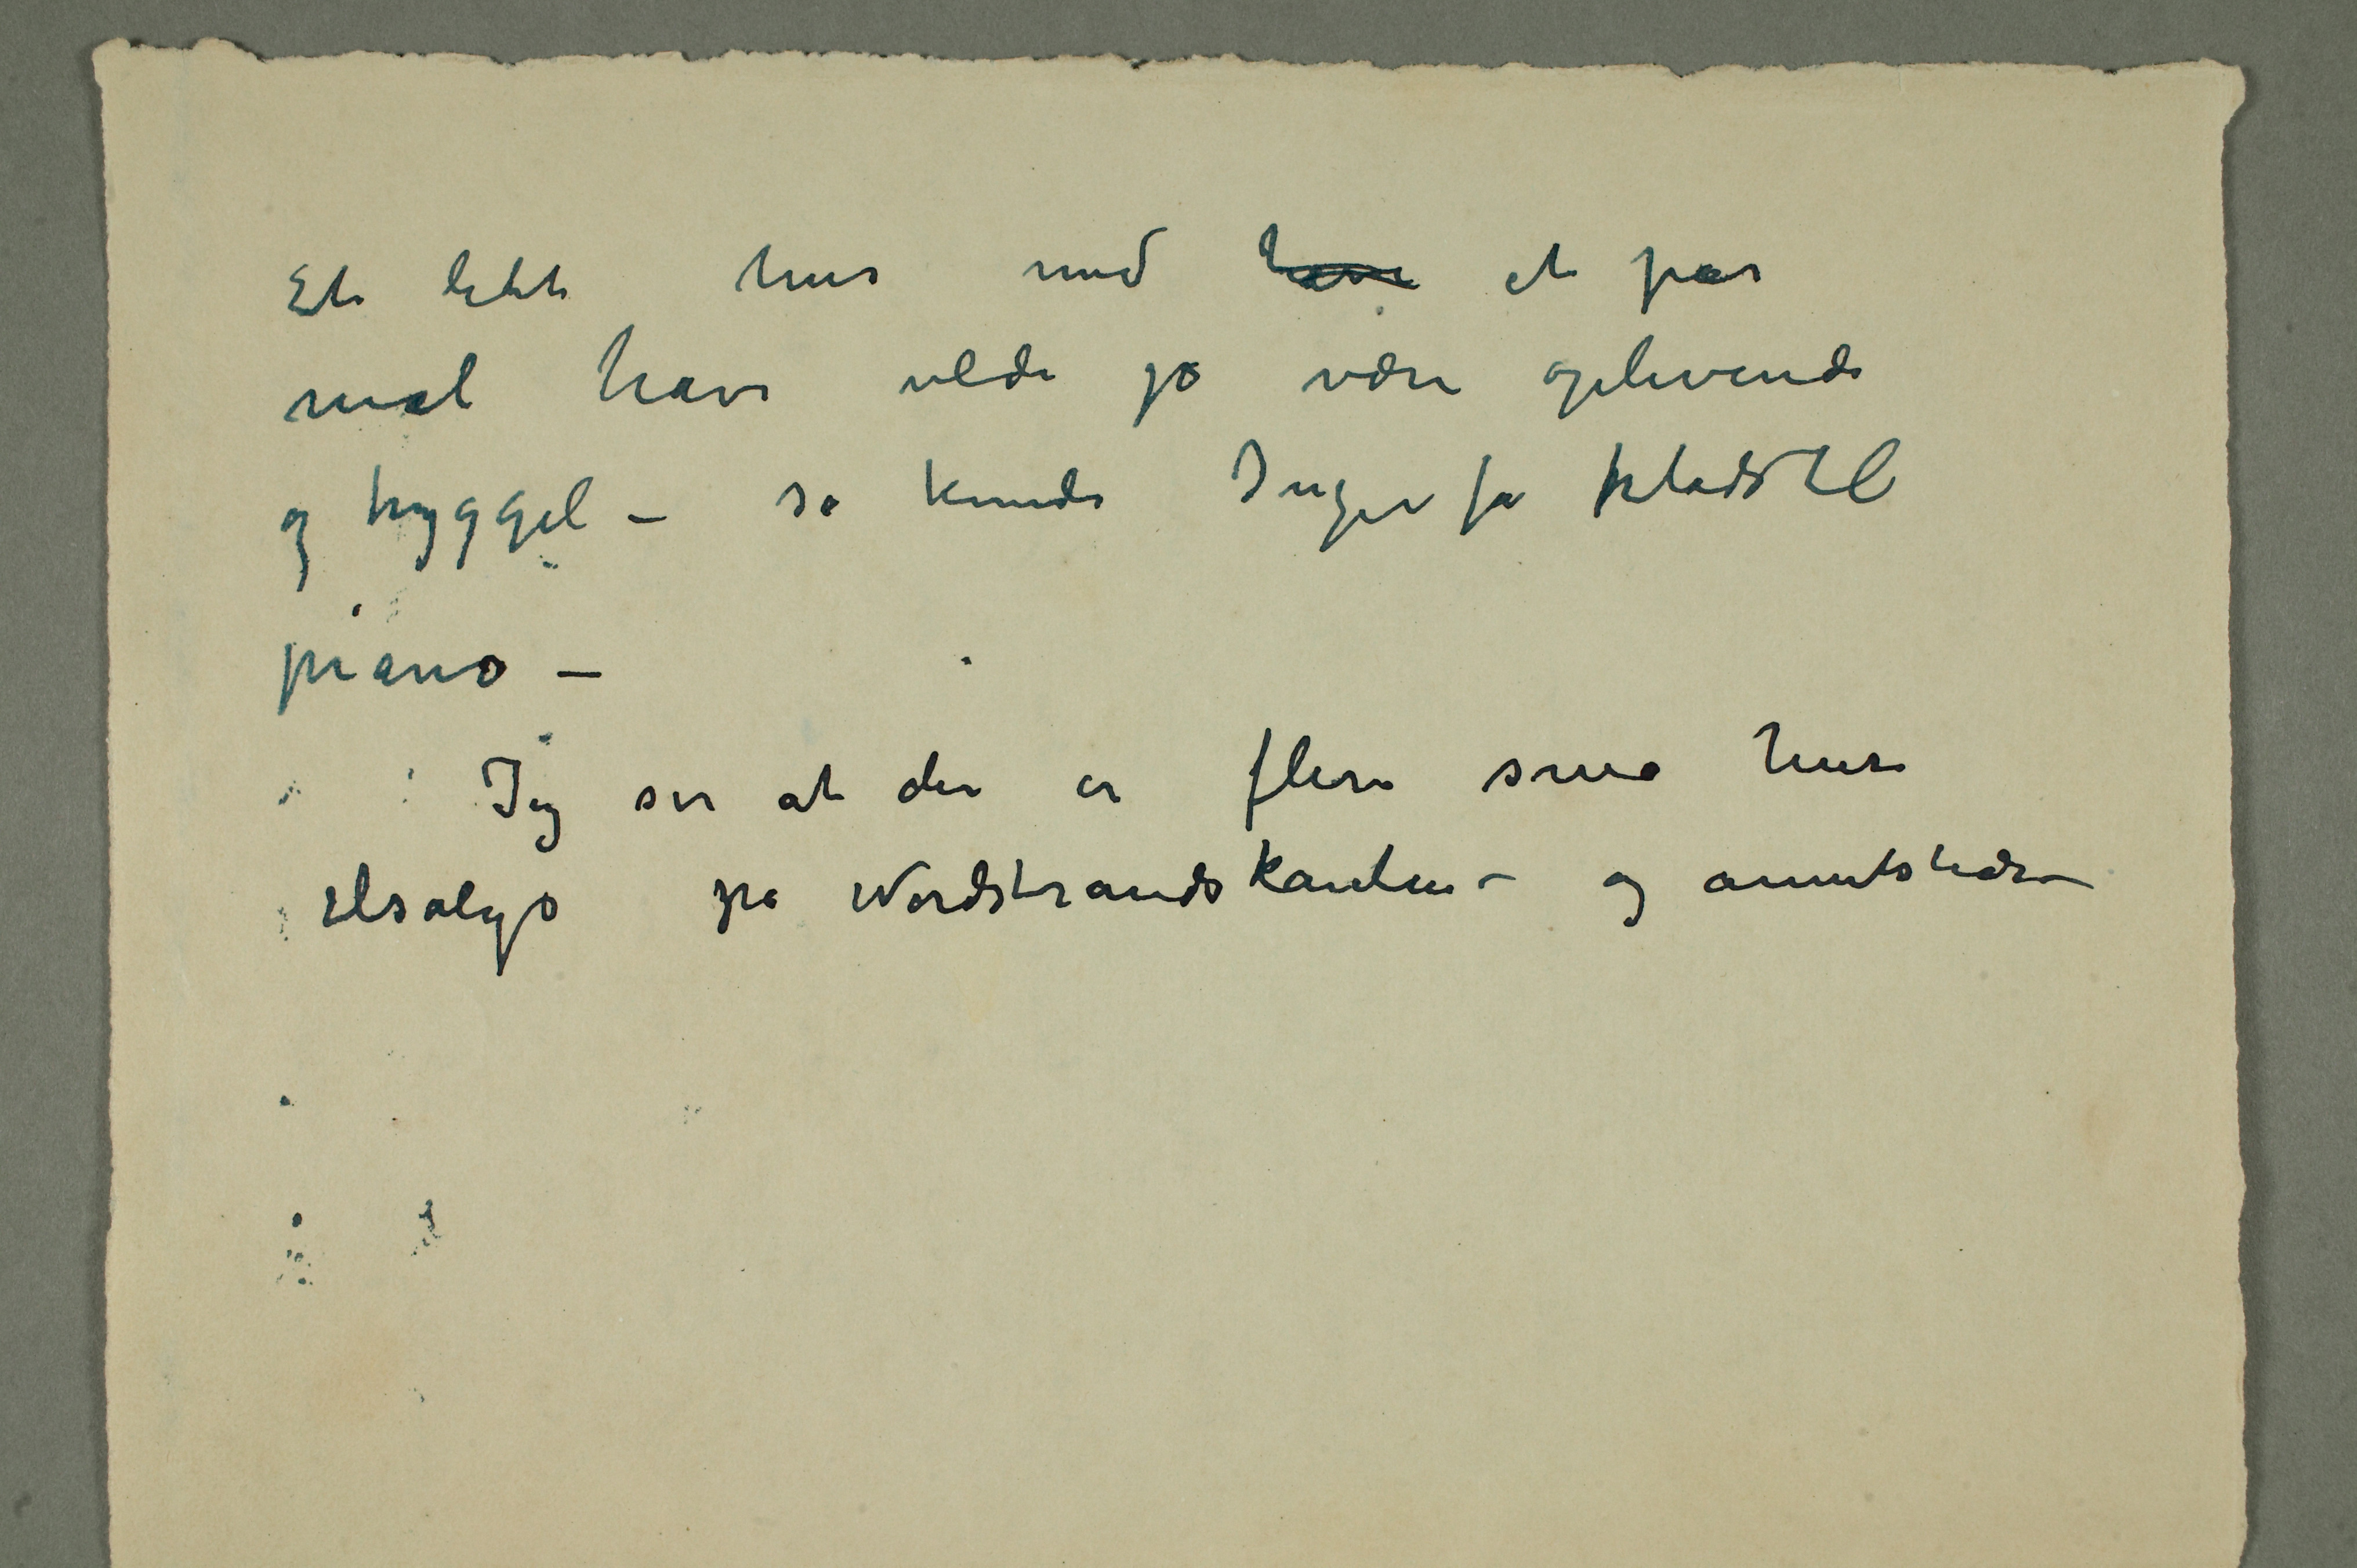 Et lidet hus med ~~have~~ et par
mål have vilde jo være oplivende
og hyggel – så kunde Inger få plads til
piano –
Jeg ser at der er flere små huse
tilsalgs på Nordstrandskanten – og annetsteds –